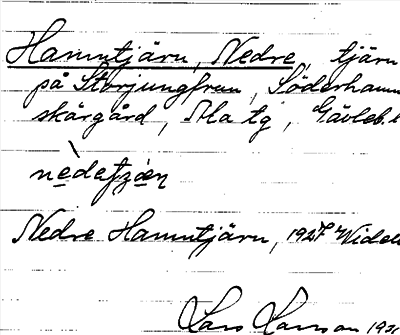 Hamntjärn, Nedre, tjärn
på Storjungfrun, Söderhamn
skärgård, Ala tg, Gävleb. l
Nedre Hamntjärn, 1927 Widel
Lars Larsson 193